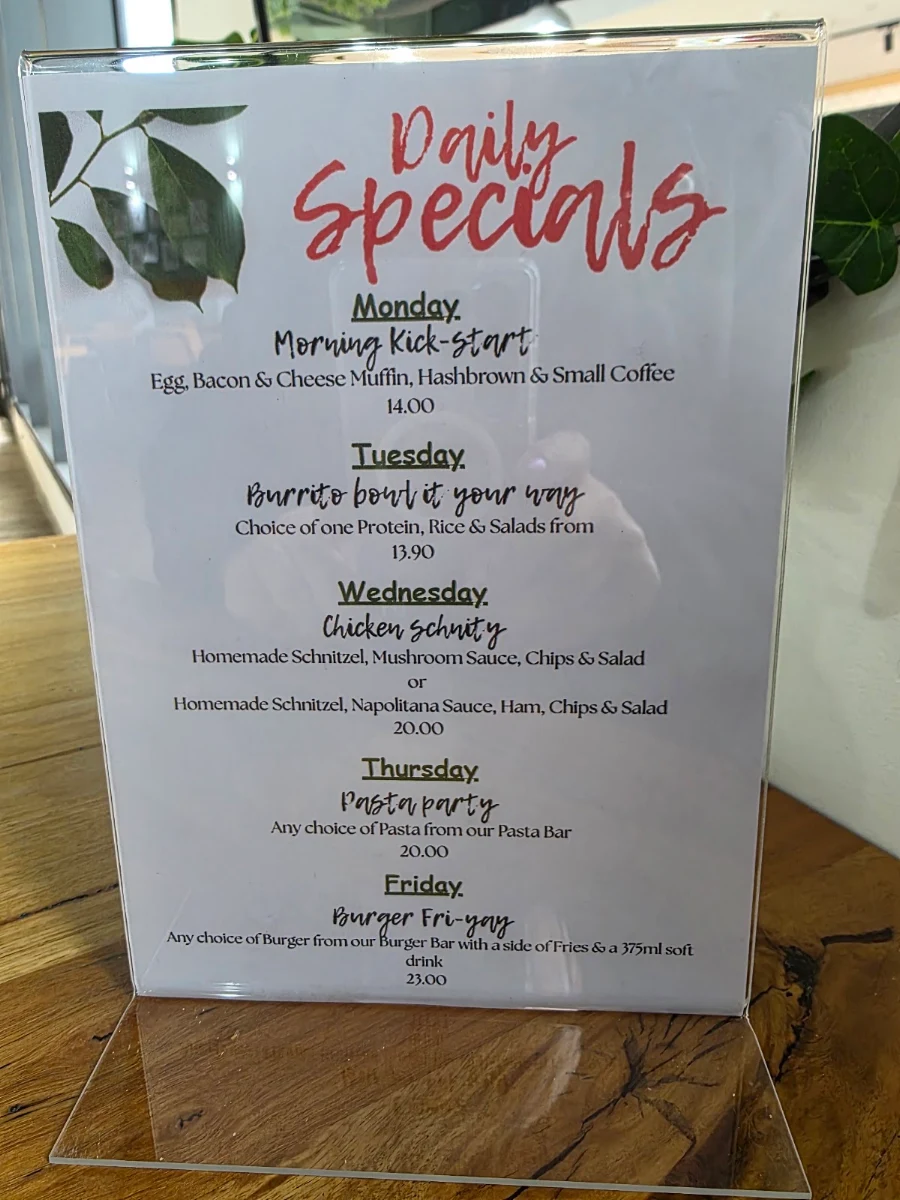 Daily
Specials
Monday
Morning Kick-start
Egg, Bacon & Cheese Muffin, Hashbrown & Small Coffee
14.00
Tuesday
Burrito bowl it your way
Choice of one Protein, Rice & Salads from
13.90
Wednesday
Chicken Schnity
Homemade Schnitzel, Mushroom Sauce, Chips & Salad
or
Homemade Schnitzel, Napolitana Sauce, Ham, Chips & Salad
20.00
Thursday
Pasta party
Any choice of Pasta from our Pasta Bar
20.00
Friday
Burger Fri-yay
Any choice of Burger from our Burger Bar with a side of Fries & a 375ml soft
drink
23.00